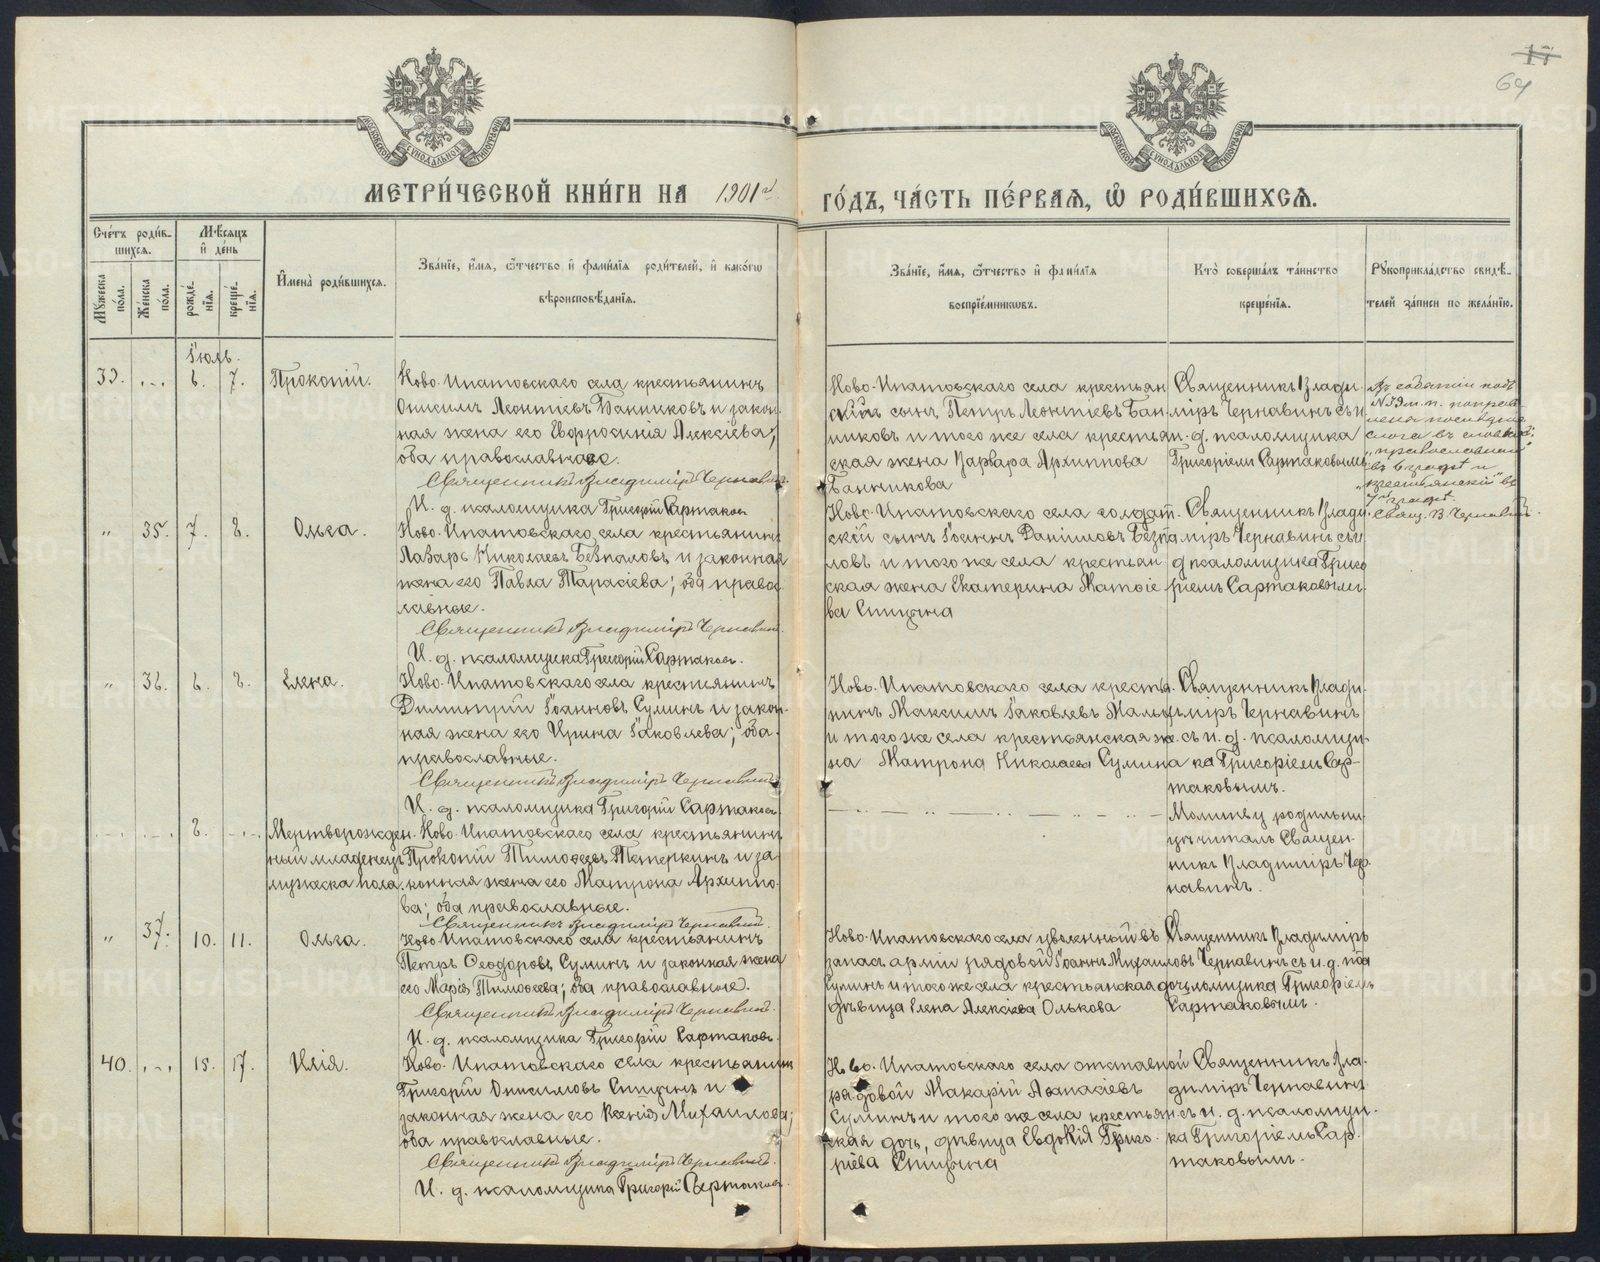 17
64
МОСКОВСКОЙ СѴНОДАЛЬНОЙ ТИПОГРАФІИ
МОСКОВСКОЙ СѴНОДАЛЬНОЙ ТИПОГРАФІИ
МЕТРИ́ЧЕСКОЙ КНИ́ГИ НА 1901 г.
ГО́ДЪ, ЧА́СТЬ ПЕ́РВАѦ, Ѡ҆ РОДИ́ВШИХСѦ.
Сче́тъ роди́в-
шихсѧ.
Мꙋ́жеска по́ла.
Же́нска по́ла.
Мѣ́сѧцъ
и҆ де́нь
рожде́-
нїѧ.
креще́-
нїѧ.
И҆мена̀ роди́вшихсѧ.
Зва́нїе, и҆́мѧ, ѻ҆́тчество и҆ фами́лїѧ роди́телей, и҆ како́гѡ
вѣроисповѣ́данїѧ.
Зва́нїе, и҆́мѧ, ѻ҆́тчество и҆ фами́лїѧ
воспрїе́мникѡвъ.
Кто̀ соверша́лъ та́инство
креще́нїѧ.
Рꙋкоприкла́дство свидѣ́-
телей за́писи по жела́нїю.
Іюль.
39. „ 6. 7. Прокопій.
Ново-Ипатовскаго села крестьянинъ
Онисимъ Леонтіевъ Банниковъ и закон-
ная жена его Евфросинія Алексіева;
оба православнаго.
Священникъ Владиміръ Чернавинъ.
И. д. псаломщика Григорій Сартаковъ.
Ново-Ипатовскаго села крестьян
скій сынъ Петръ Леонтіевъ Бан-
никовъ и того же села крестьян-
ская жена Варвара Архиппова
Банникова
Священникъ Влади-
міръ Чернавинъ съ и.
д. псаломщика
Григоріемъ Сартаковымъ
„ 35. 7. 8. Ольга.
Ново-Ипатовскаго села крестьянинъ
Лазарь Николаевъ Безпаловъ и законная
жена его Павла Тарасіева; оба правос-
лавные.
Священникъ Владиміръ Чернавинъ.
И. д. псаломщика Григорій Сартаковъ.
Ново-Ипатовскаго села солдат-
скій сынъ Іоаннъ Даніиловъ Безпа-
ловъ и того же села крестьян-
ская жена Екатерина Матѳіе-
ва Спицына
Священникъ Влади-
міръ Чернавинъ съ и.
д. псаломщика Григо-
ріемъ Сартаковымъ.
„ 36. 6. 8. Елена.
Ново-Ипатовскаго села крестьянинъ
Димитрій Іоанновъ Суминъ и закон-
ная жена его Ирина Іаковлева; оба
православные.
Священникъ Владиміръ Чернавинъ.
И. д. псаломщика Григорій Сартаковъ.
и того же села крестьянская же-
на Матрона Николаева Сумина
Священникъ Влади-
міръ Чернавинъ
съ и. д. псаломщи-
ка Григоріемъ Сар-
таковымъ.
8. Мертворожден-
ный младенецъ
мужеска пола.
Ново-Ипатовскаго села крестьянинъ
Прокопій Тимоѳеевъ Тетеркинъ и за-
конная жена его Матрона Архиппо-
ва; оба православные.
Священникъ Владиміръ Чернавинъ.
Молитву родильни-
цѣ читалъ Священ-
никъ Владиміръ Чер-
навинъ.
„ 37. 10. 11. Ольга.
Ново-Ипатовскаго села крестьянинъ
Петръ Ѳеодоровъ Суминъ и законная жена
его Марія Тимоѳеева; оба православные.
Священникъ Владиміръ Чернавинъ.
И. д. псаломщика Григорій Сартаковъ.
Ново-Ипатовскаго села уволенный въ
запасъ арміи рядовой Іоаннъ Михаиловъ
Суминъ и того же села крестьянская дочь,
дѣвица Елена Алексіева Олькова
Священникъ Владиміръ
Чернавинъ съ и. д. пса
ломщика Григоріемъ
Сартаковымъ.
40. „ 15. 17. Илія.
Ново-Ипатовскаго села крестьянинъ
Григорій Онисимовъ Спицынъ и
законная жена его Ксенія Михаилова;
оба православные.
Священникъ Владиміръ Чернавинъ.
И. д. псаломщика Григорій Сартаковъ.
Ново-Ипатовскаго села отставной
рядовой Макарій Аѳанасіевъ
Суминъ и того же села крестьян-
ская дочь, дѣвица Евдокія Григо-
ріева Спицына
Священникъ Вла-
диміръ Чернавинъ
съ и. д. псаломщи-
ка Григоріемъ Сар-
таковымъ.